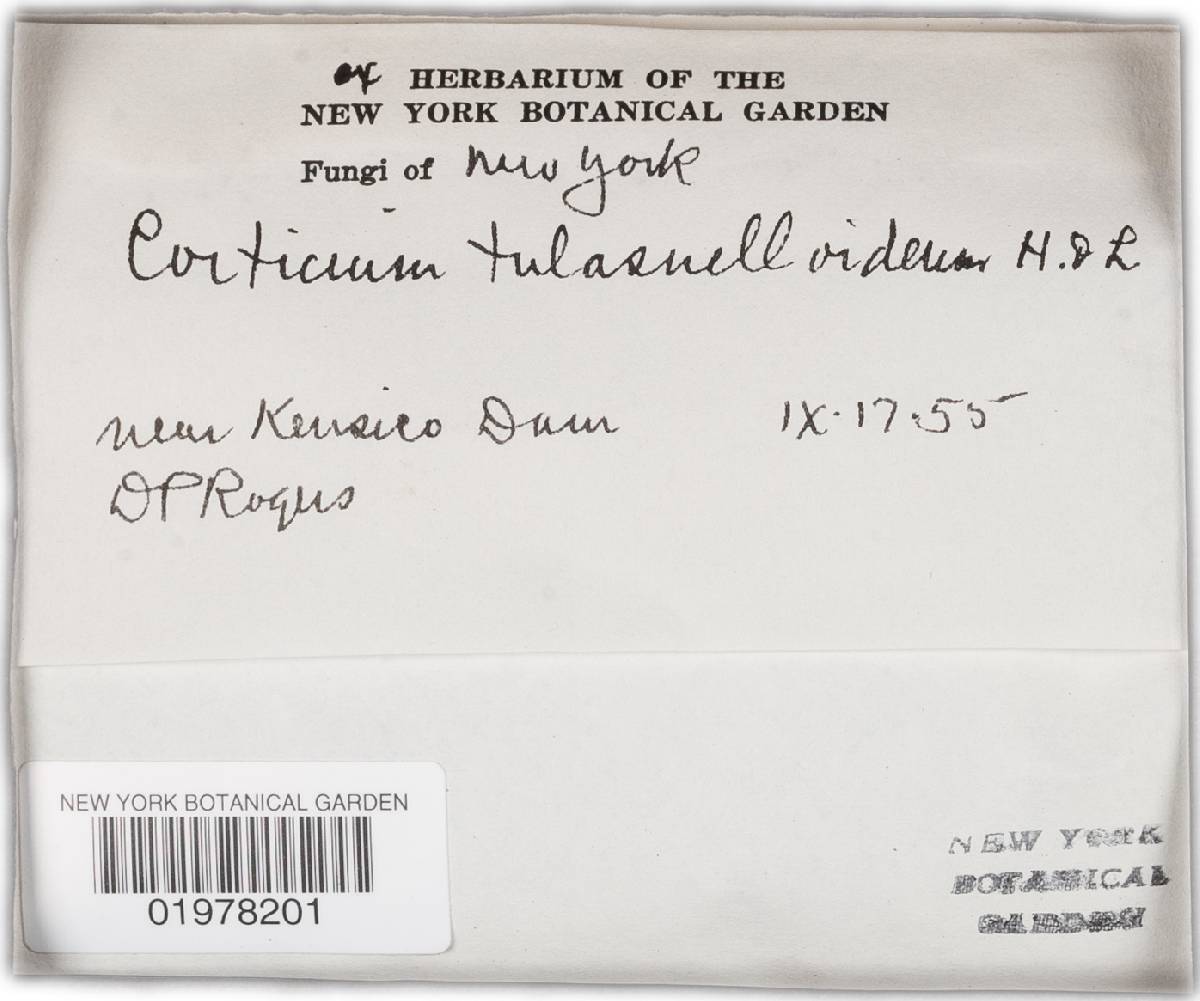 ex HERBARIUM OF THE
NEW YORK BOTANICAL GARDEN
Fungi of New York
Corticium tulasnelloideum H. & L
near Kensico Dam IX·17·55
DP Rogers
NEW YORK BOTANICAL GARDEN
01978201
NEW YORK
BOTANICAL
GARDEN